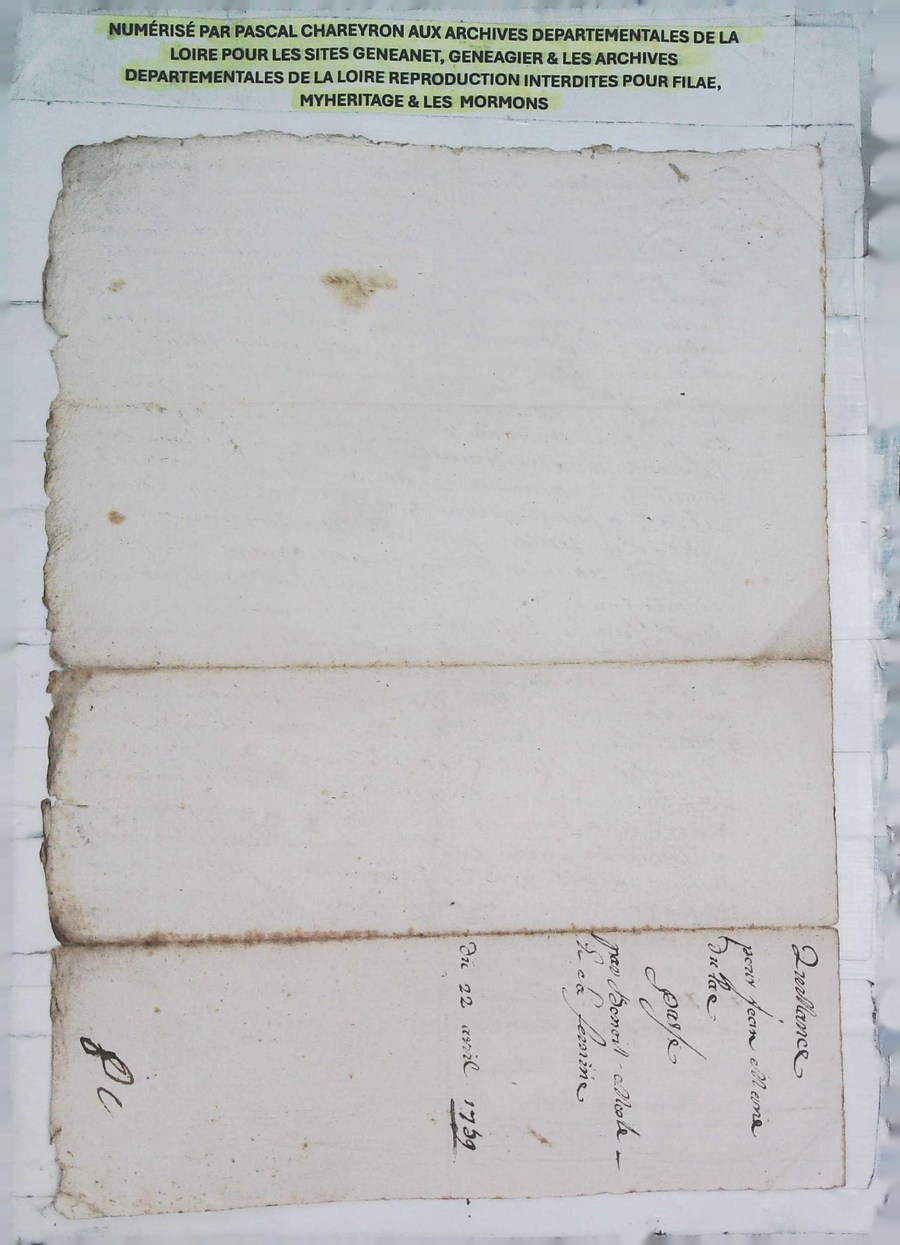 NUMÉRISÉ PAR PASCAL CHAREYRON AUX ARCHIVES DEPARTEMENTALES DE LA
LOIRE POUR LES SITES GENEANET, GENEAGIER & LES ARCHIVES
DEPARTEMENTALES DE LA LOIRE REPRODUCTION INTERDITES POUR FILAE,
MYHERITAGE & LES MORMONS
pour Jean Marie
Du lac
passé
par Benoist
& sa femme
Du 22 avril 1739